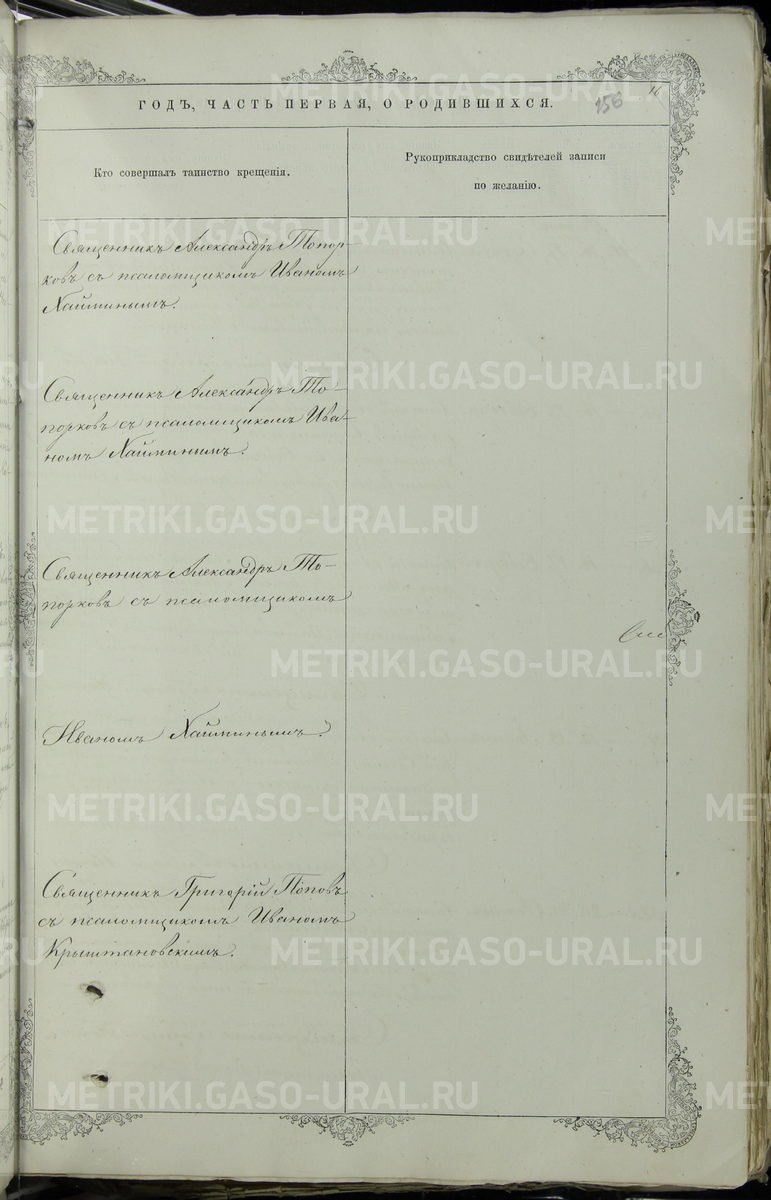 ГОДЪ, ЧАСТЬ ПЕРВАЯ, О РОДИВШИХСЯ.
156
Кто совершалъ таинство крещенія.
Рукоприкладство свидѣтелей записи
по желанію.
Священникъ Александръ Топор-
ковъ съ псаломщикомъ Иваномъ
Хайминымъ.
Священникъ Александръ То-
порковъ съ псаломщикомъ Ива-
номъ Хайминымъ.
Священникъ Александръ То-
порковъ съ псаломщикомъ
Иваномъ Хайминымъ.
Священникъ Григорій Поповъ
съ псаломщикомъ Иваномъ
Крыштановскимъ.
METRIKI.GASO-URAL.RU